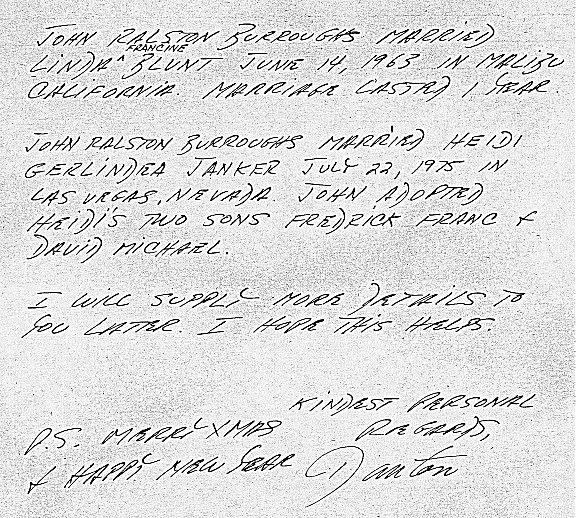 JOHN RALSTON BURROUGHS MARRIED
LINDA ^FRANCINE BLUNT JUNE 14, 1963 IN MALIBU
CALIFORNIA. MARRIAGE LASTED 1 YEAR.
JOHN RALSTON BURROUGHS MARRIED HEIDI
GERLINDEA JANKER JULY 22, 1975 IN
LAS VEGAS, NEVADA. JOHN ADOPTED
HEIDI'S TWO SONS FREDRICK FRANC &
DAVID MICHAEL.
I WILL SUPPLY MORE DETAILS TO
YOU LATER. I HOPE THIS HELPS.
KINDEST PERSONAL
REGARDS,
Danton
P.S. MERRY XMAS
& HAPPY NEW YEAR